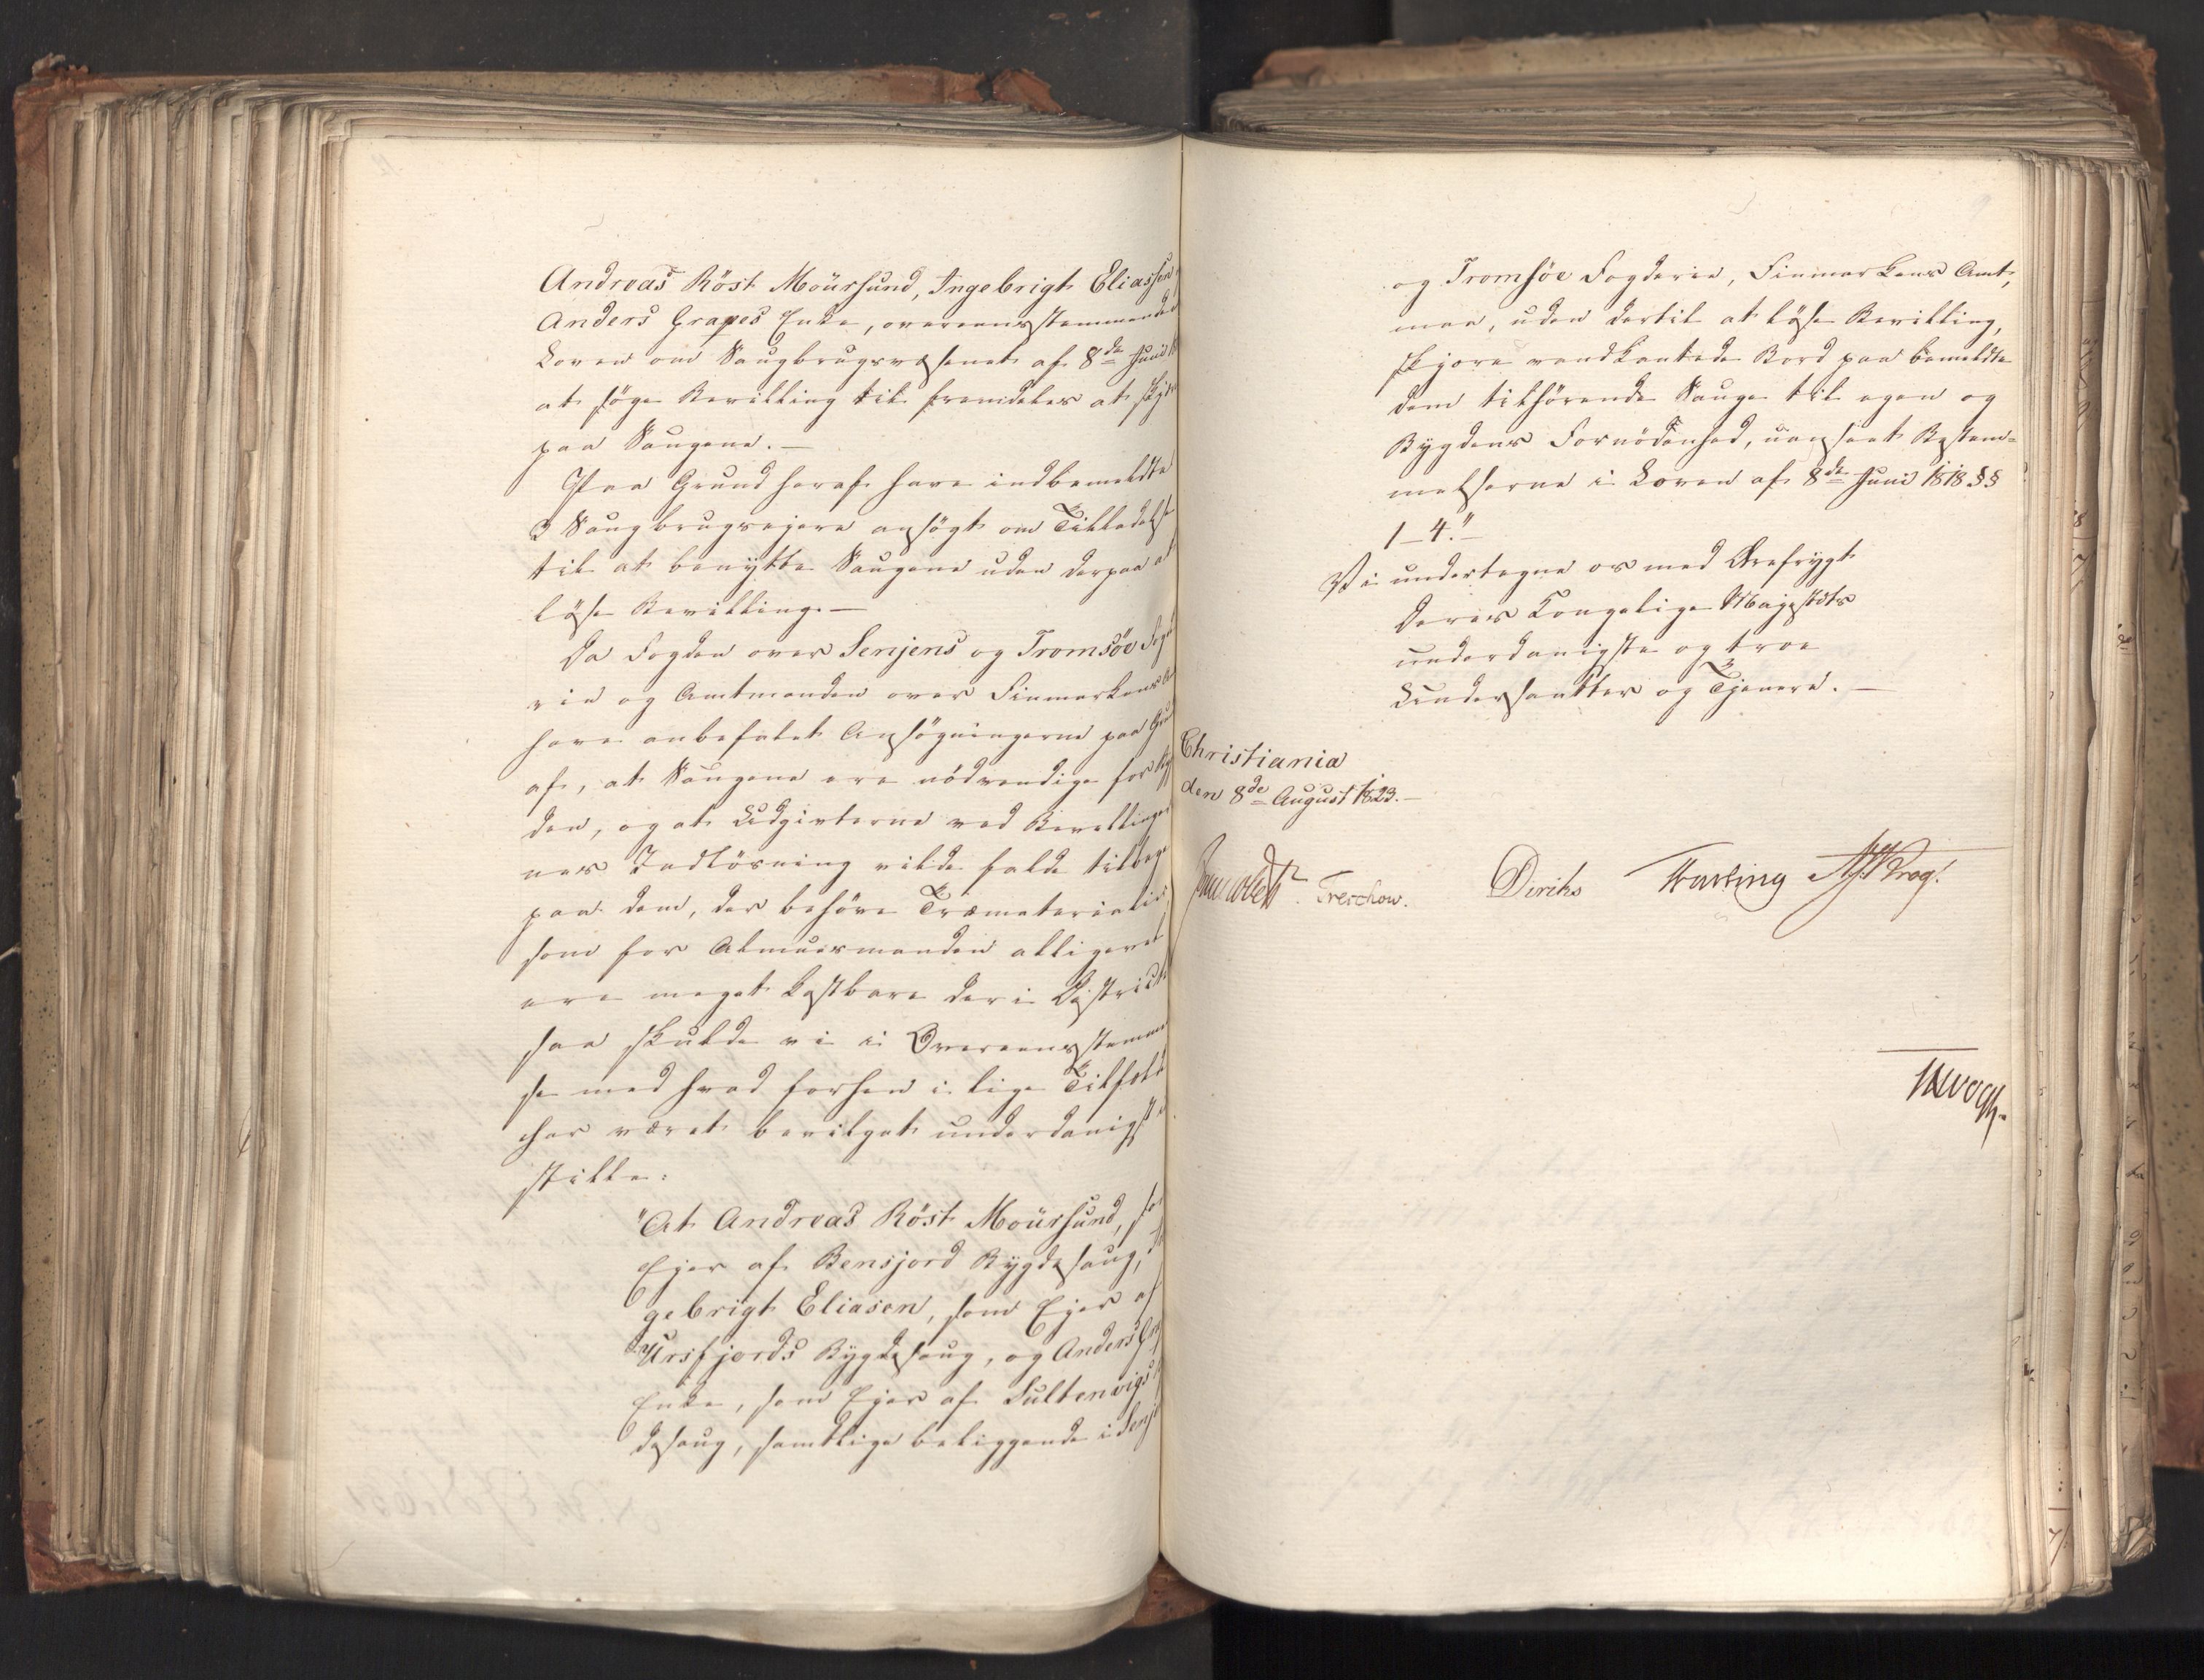 Andreas Röst Moursund, Ingebrigt Eliassen
Anders Grapes Enke, overeensstemmende
Loven om Saugbrugsvæsenet af 8de Juni
at søge Bevilling til fremdeles at skjære
paa Saugene.—
Paa Grund heraf have indbemeldte
3 Saugbrugsejere ansögt om Tilladelse
til at benytte Saugene uden derpaa at
löse Bevilling.—
Da Fogden over Senjens og Tromsöe
rie og Amtmanden over Finmarkens
have anbefalet Ansögningerne paa Gru
af, at Saugene ere nödvendige for
den, og at Udgivterne ved Bevillinger
nes Indlösning vilde falde tilbage
paa dem, der behöve Træmaterialier
som for Almuesmanden alligevel
ere meget kostbare der i District
saa skulde vi i Overeensstemmel
se med hvad forhen i lige Tilfælde
har været bevilget underdanigst
stille:
"At Andreas Röst Moursund, som
Ejer af Bensjord Bygdesaug, In
gebrigt Eliasen, som Ejer af
Ursfjords Bygdesaug, og Anders
Enke, som Ejer af Sultenvigs
desaug, samtlige beliggende i Senje
og Tromsöe Fogderie, Finmarkens Amt,
maa, uden dertil at löse Bevilling,
skjære vandkantede Bord paa bemeldte
dem tilhörende Sauge til egen og
Bygdens Fornödenhed, uanseet Bestem=
melserne i Loven af 8de Juni 1818 §§
1-4."—
Vi undertegne os med Ærefrygt
Deres Kongelige Majestæts
underdanigste og troe
Undersaatter og Tjenere.—
Christiania
den 8de August 1823.—
Treschow. Diriks Motzfeldt Krog.